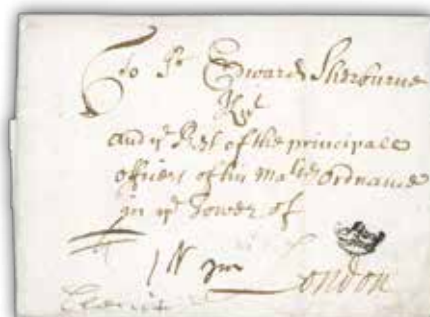 To Sr Edward Sherburne
Knt
and ye Rest of the principale
officers of his Matties Ordnance
in ye Tower of
London